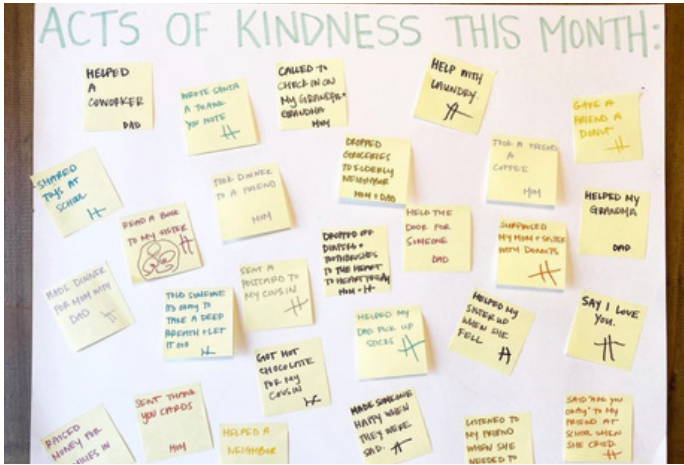 ACTS OF KINDNESS THIS MONTH:
HELPED
A
COWORKER
DAD
WROTE SANTA
A THANK
YOU NOTE
H
CALLED TO
CHECK IN ON
MY GRANDPA +
GRANDMA
MOM
HELP WITH
LAUNDRY.
H
GAVE A
FRIEND A
DONUT
H
SHARED
TOYS AT
SCHOOL
H
TOOK DINNER
TO A FRIEND
MOM
DROPPED
GROCERIES
TO ELDERLY
NEIGHBOR
MOM + DAD
TOOK A FRIEND
A
COFFEE
MOM
HELPED MY
GRANDMA
DAD
READ A BOOK
TO MY SISTER
H
DROPPED OFF
DIAPERS +
TOOTHBRUSHES
TO THE HEART
TO HEART
MOM + H
HELD THE
DOOR FOR
SOMEONE
DAD
SURPRISED
MY MOM + SISTER
WITH DONUTS
H
MADE DINNER
FOR MOM WITH
DAD
H
TOLD SOMEONE
ITS OKAY TO
TAKE A DEEP
BREATH + LET
IT GO
H
SENT A
POSTCARD TO
MY COUSIN
H
HELPED MY
DAD PICK UP
SOCKS
H
HELPED MY
SISTER UP
WHEN SHE
FELL
H
SAY I LOVE
YOU.
H
GOT HOT
CHOCOLATE
FOR MY
COUSIN
H
RAISED
MONEY FOR
IN
SENT THANK
YOU CARDS
MOM
HELPED A
NEIGHBOR
MADE SOMEONE
HAPPY WHEN
THEY WERE
SAD.
H
LISTENED TO
MY FRIEND
WHEN SHE
NEEDED TO
SAID "ARE YOU
OKAY" TO MY
FRIEND AT
SCHOOL WHEN
SHE CRIED.
H